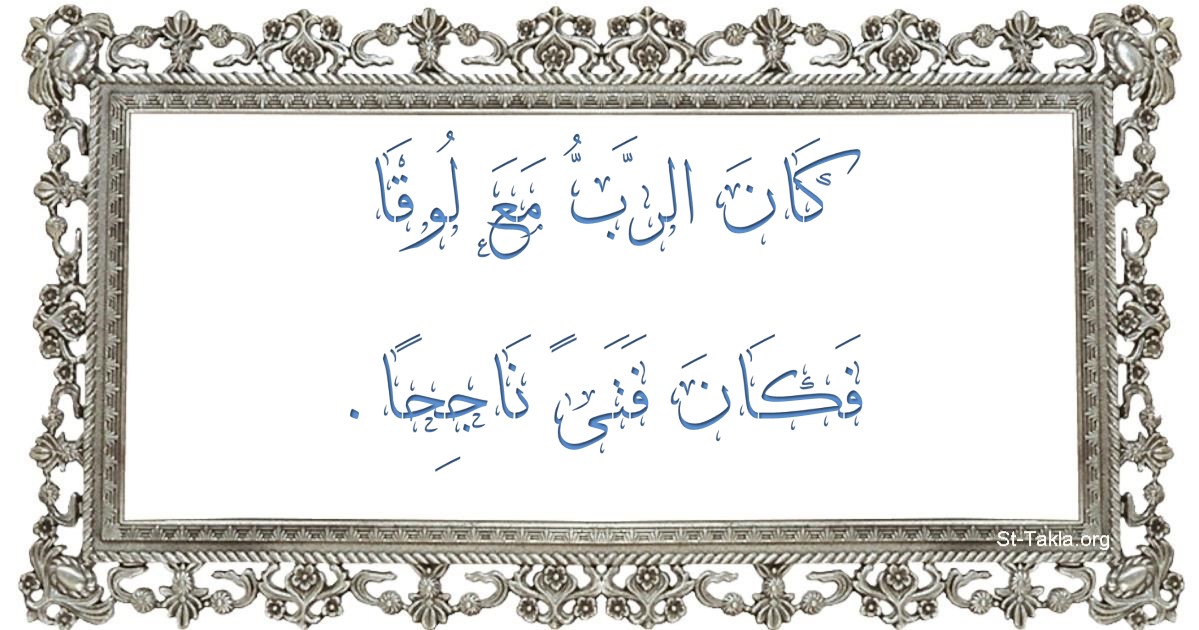 كَانَ الرَّبُّ مَعَ لُوقَا
فَكَانَ فَتَىً نَاجِحًا .
St-Takla.org